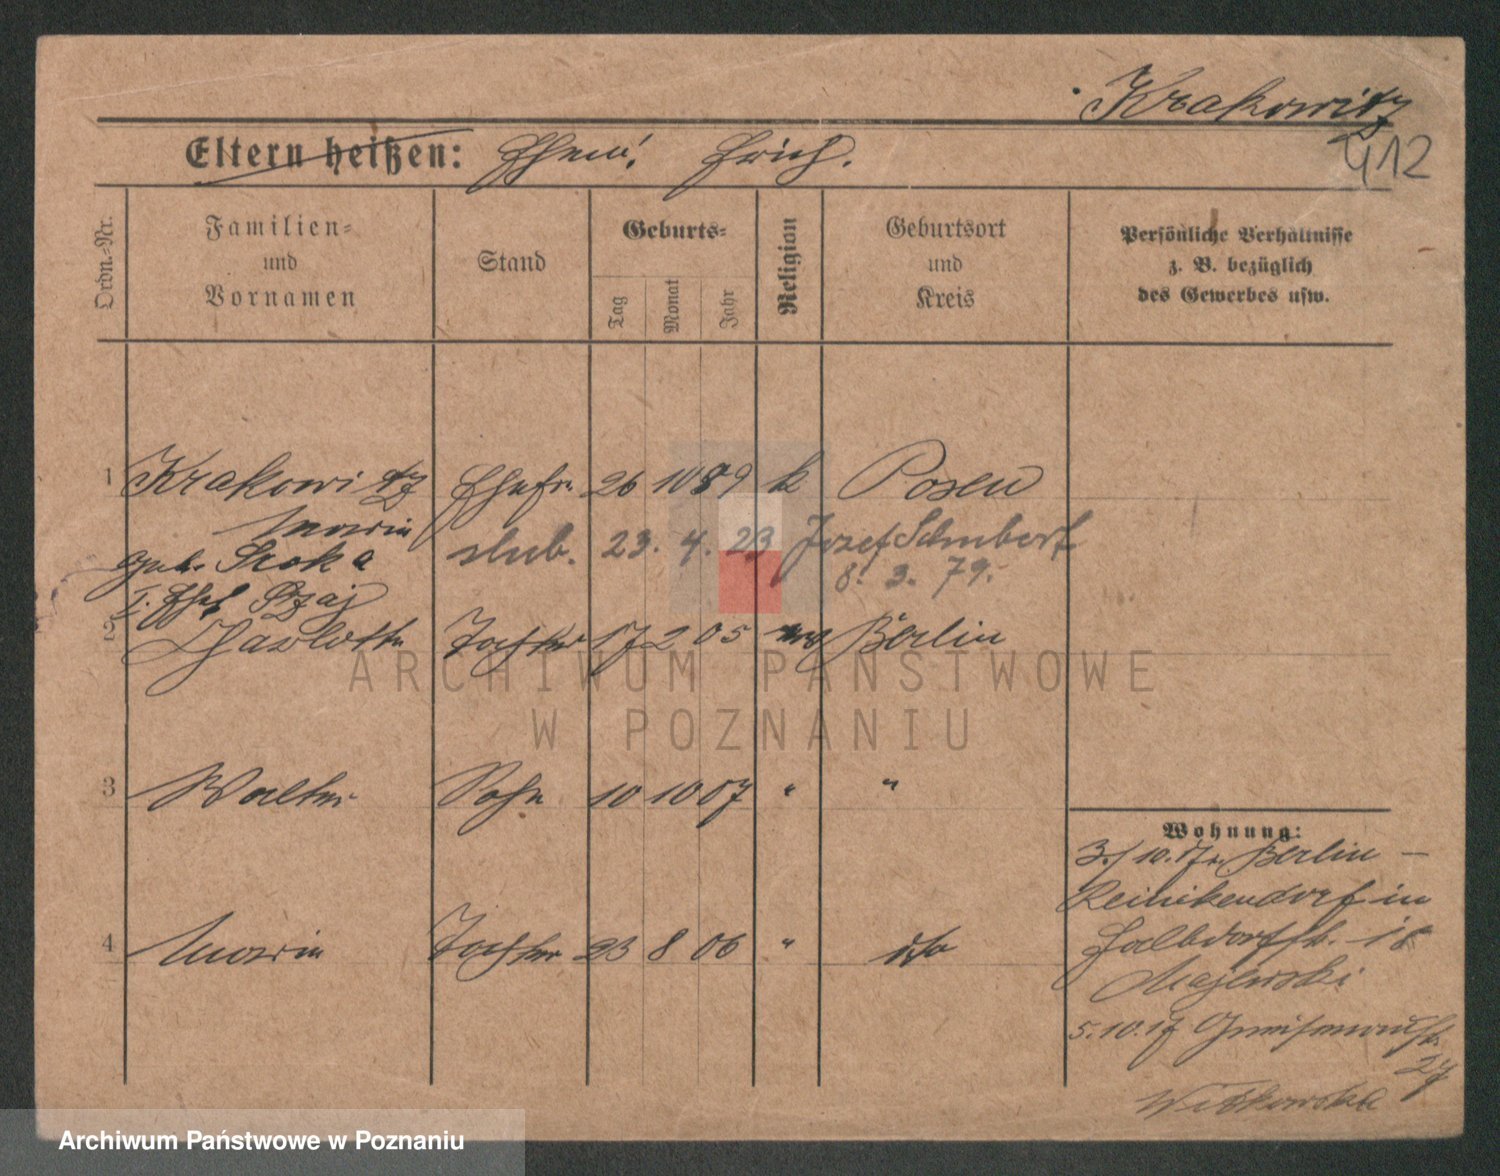 Krakowitz
412
Eltern heißen: Ehem! Erich.
Ordn.-Nr.
Familien-
und
Vornamen
Stand
Geburts-
Tag
Monat
Jahr
Religion
Geburtsort
und
Kreis
Persönliche Verhältnisse
z. B. bezüglich
des Gewerbes usw.
1 Krakowitz Ehefr. 26 10 89 k Posen
Maria
geb. Sroka ślub. 23. 4. 23 Jozef Schubert
8. 3. 79.
I. Ehe
2 Charlotte Tochter 17 2 05 Berlin
3 Walter Sohn 10 10 07 " "
4 Maria Tochter 23 8 06 " dto
Wohnung:
3./10.17. Berlin –
Reinikendorf in
18
Majewski
5.10.17 Gneisenaustr.
27
Witkowska
ARCHIWUM PAŃSTWOWE
W POZNANIU
Archiwum Państwowe w Poznaniu